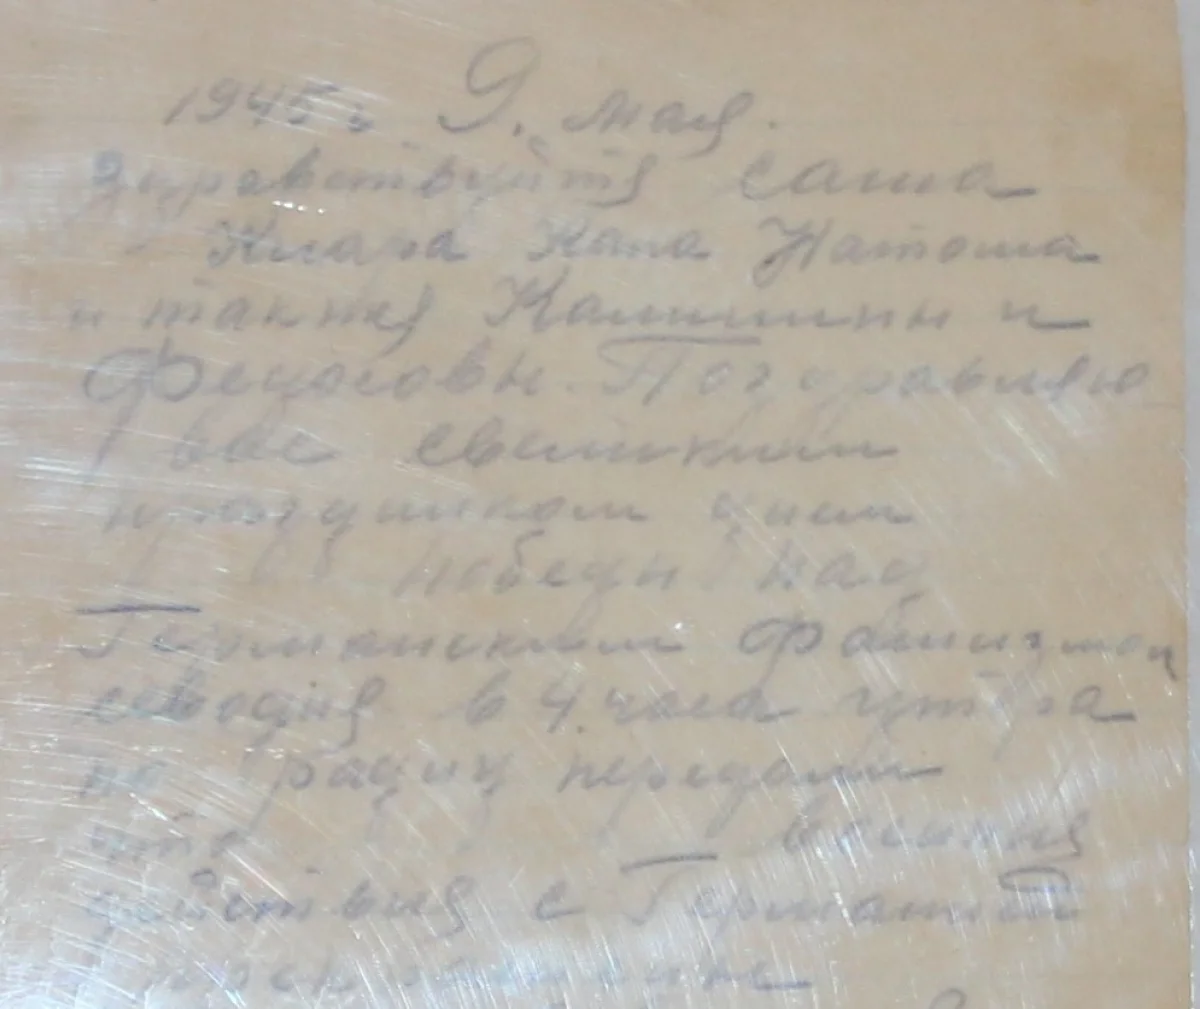 1945 г 9. мая.
Здравствуйтя саша
Клара Капа Натоша
и такжя Калинины и
Федосовы. Поздравляю
вас свеликим
праздником днем
победы над
Германским фашизмом
севодня в 4. часа утра
по радиу передали
что военныя
действия с Германией